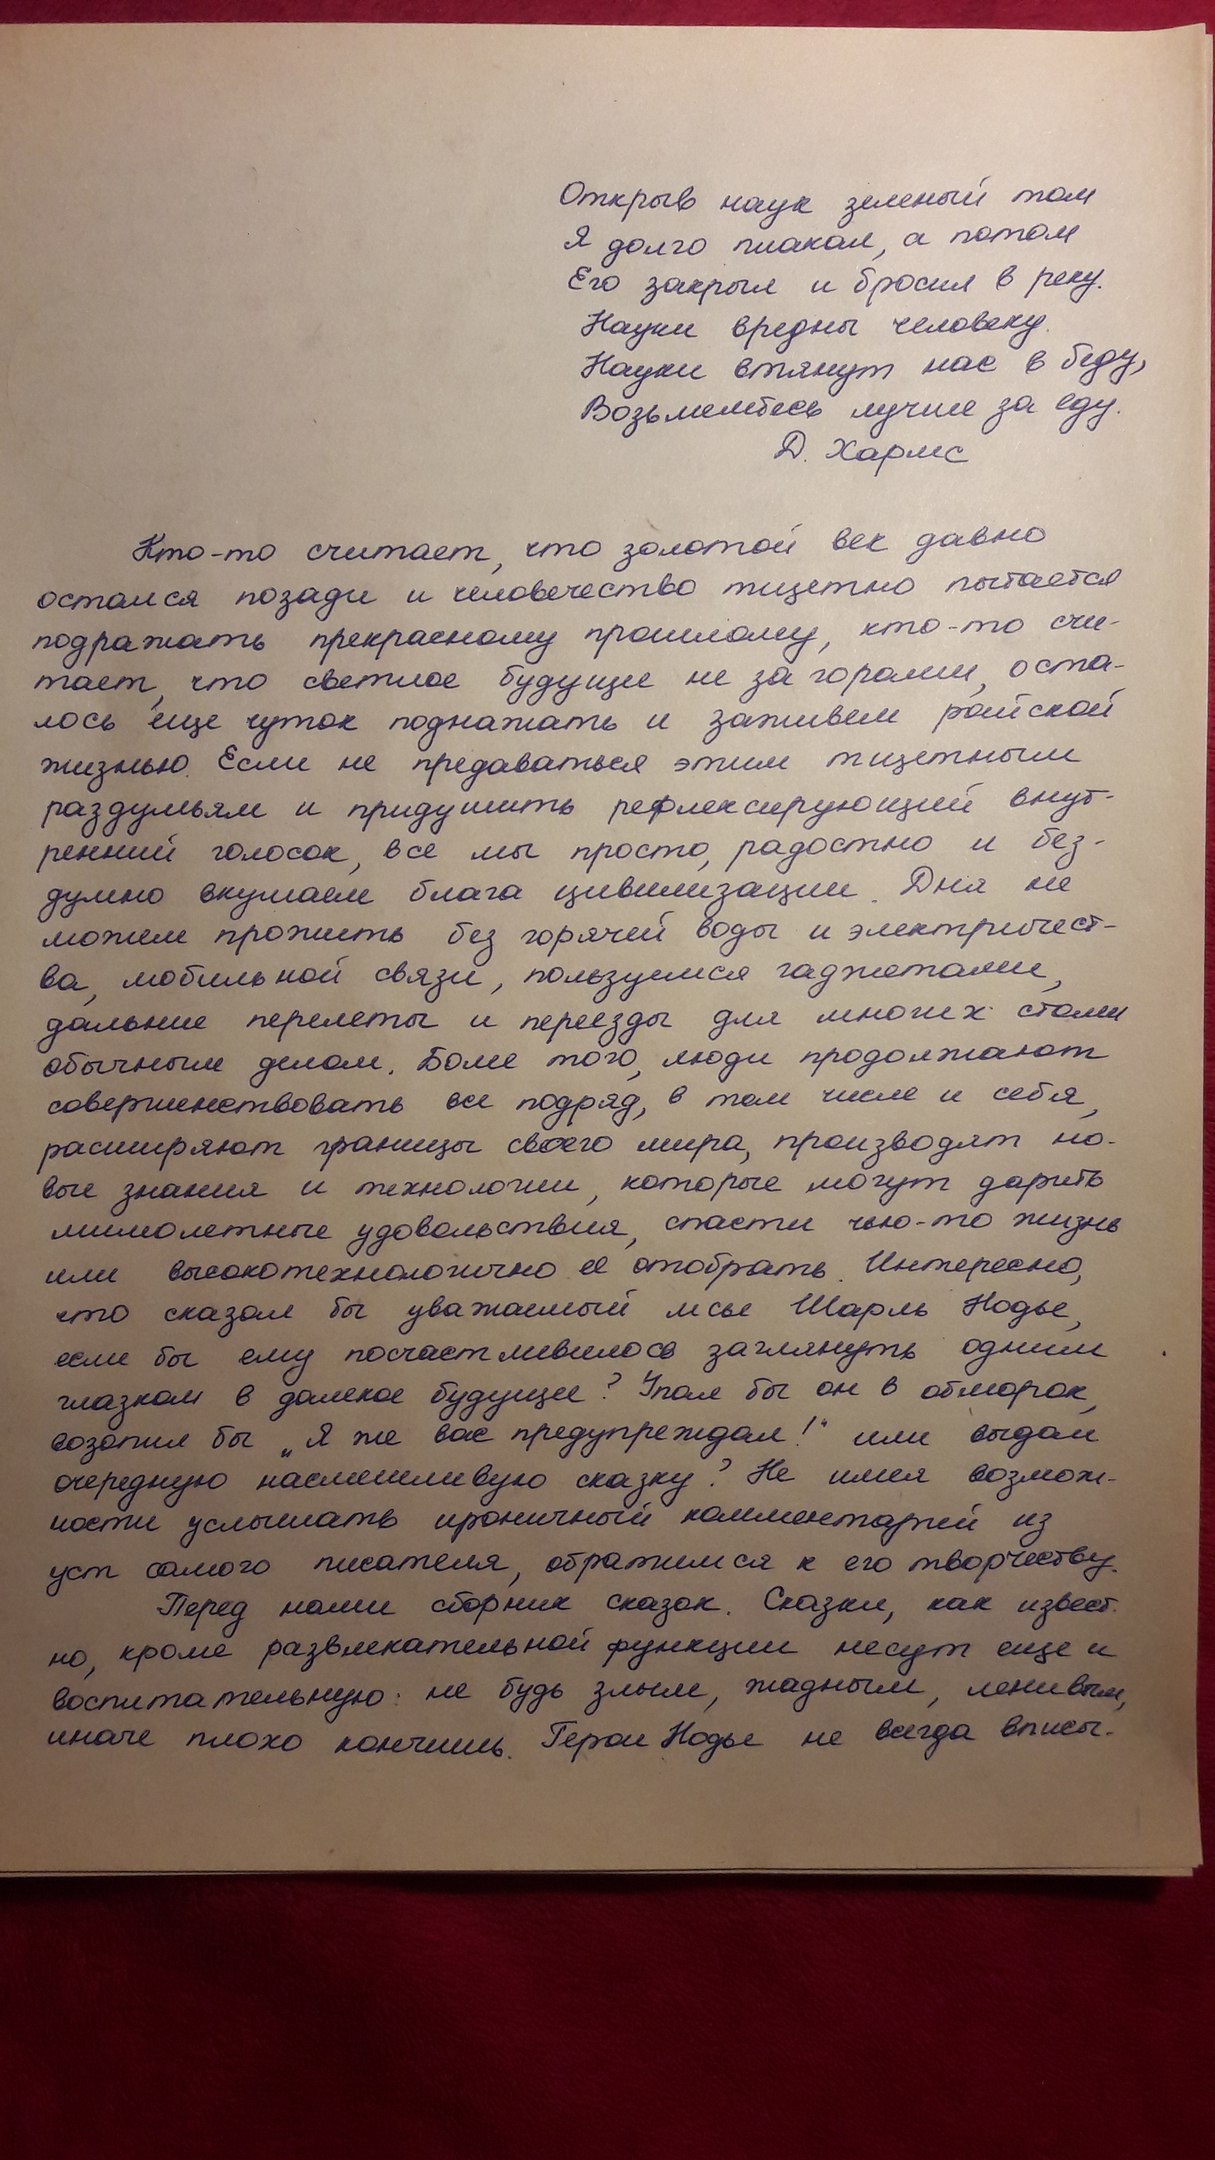 Открыв наук зеленый том
Я долго плакал, а потом
Его закрыл и бросил в реку.
Науки вредны человеку.
Науки втянут нас в беду,
Возьмемтесь лучше за еду.
Д. Хармс
Кто-то считает, что золотой век давно
остался позади и человечество тщетно пытается
подражать прекрасному прошлому, кто-то счи-
тает, что светлое будущее не за горами, оста-
лось еще чуток поднажать и заживем райской
жизнью. Если не предаваться этим тщетным
раздумьям и придушить рефлексирующий внут-
ренний голосок, все мы просто, радостно и без-
думно вкушаем блага цивилизации. Дня не
можем прожить без горячей воды и электричест-
ва, мобильной связи, пользуемся гаджетами,
дальние перелеты и переезды для многих стали
обычным делом. Более того, люди продолжают
совершенствовать все подряд, в том числе и себя,
расширяют границы своего мира, производят но-
вые знания и технологии, которые могут дарить
мимолетные удовольствия, спасти чью-то жизнь
или высокотехнологично ее отобрать. Интересно,
что сказал бы уважаемый мсье Шарль Нодье,
если бы ему посчастливилось заглянуть одним
глазком в далекое будущее? Упал бы он в обморок,
возопил бы „Я же вас предупреждал!“ или выдал
очередную насмешливую сказку? Не имея возмож-
ности услышать ироничный комментарий из
уст самого писателя, обратимся к его творчеству.
Перед нами сборник сказок. Сказки, как извест-
но, кроме развлекательной функции несут еще и
воспитательную: не будь злым, жадным, ленивым,
иначе плохо кончишь. Герои Нодье не всегда вписы-